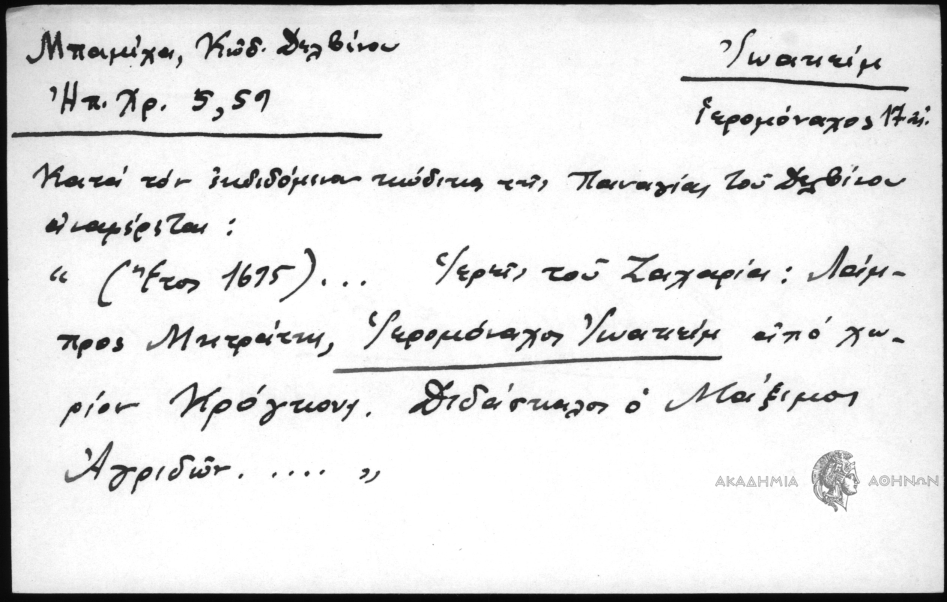 Μπαμίχα, Κώδ. Δελβίνου
Ἠπ. Χρ. 5, 59
Ἰωακεὶμ
ἱερομόναχος 17 αἰ.
Κατὰ τὸν ἐκδιδόμενον κώδικα τῆς Παναγίας τοῦ Δελβίνου
ἀναφέρεται:
“ (Ἔτος 1675)... Ἱερεῖς τοῦ Ζαχαρία: Λάμ-
προς Μητράτης, Ἱερομόναχος Ἰωακεὶμ ἀπὸ χω-
ρίον Κρόγκους. Διδάσκαλος ὁ Μάξιμος
Ἀγριδῶν. .... „
ΑΚΑΔΗΜΙΑ ΑΘΗΝΩΝ